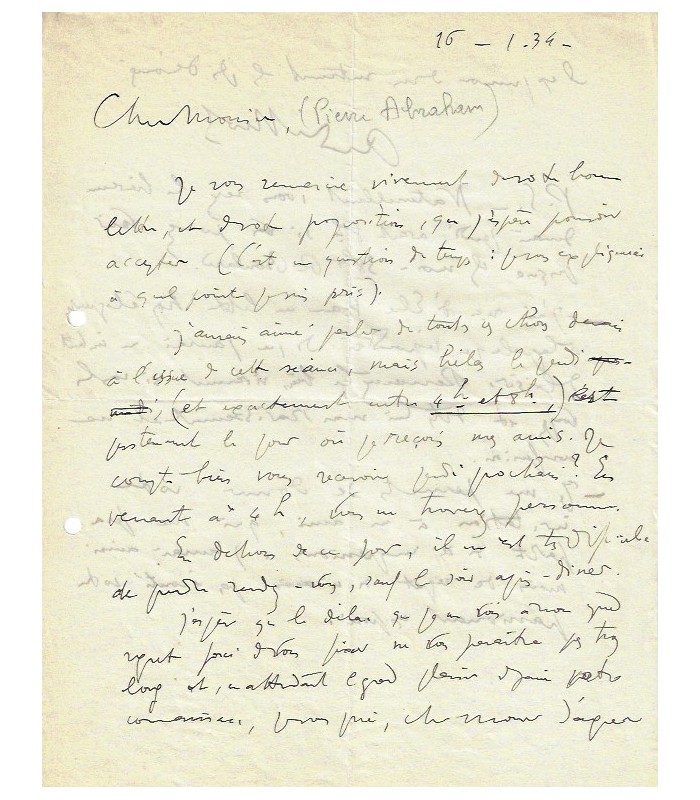 16 - 1. 34 -
Cher Monsieur, (Pierre Abraham)
Je vous remercie vivement de votre bonne
lettre, et de votre proposition, que j'espère pouvoir
accepter (C'est une question de temps : je vous expliquerai
à quel point je suis pris).
J'aurais aimé parler de toutes ces choses
à l'issue de cette séance, mais hélas le jeudi
(et exactement entre 4h et 8h,) c'est
justement le jour où je reçois mes amis. Je
compte bien vous recevoir jeudi prochain? En
venant à 4h, vous ne trouverez personne.
En dehors de ce jour, il m'est très difficile
de prendre rendez-vous, sauf le soir après-dîner.
J'espère que le délai que je me vois à mon grand
regret forcé de vous fixer ne vous paraîtra pas trop
long et, en attendant le grand plaisir de faire votre
connaissance, je vous prie, cher Monsieur d'agréer